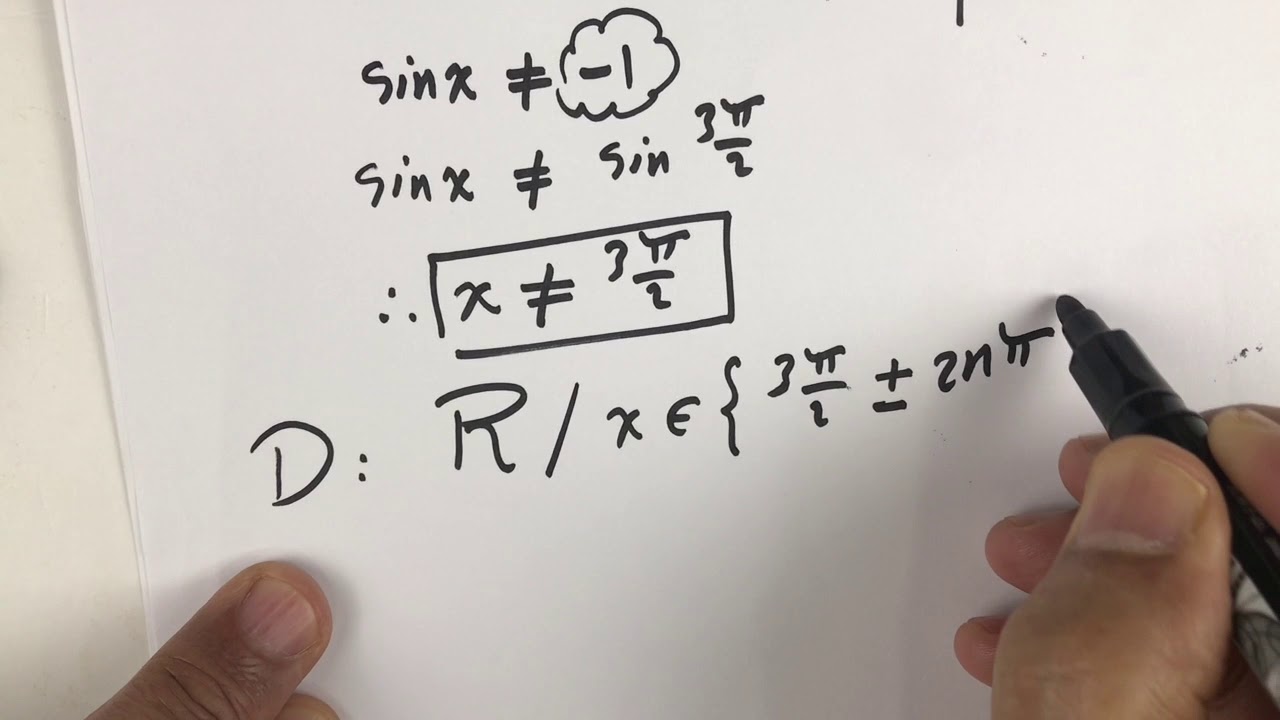 sinx ≠ -1
sinx ≠ sin 3π/2
∴ x ≠ 3π/2
D: R / x ∈ { 3π/2 ± 2nπ